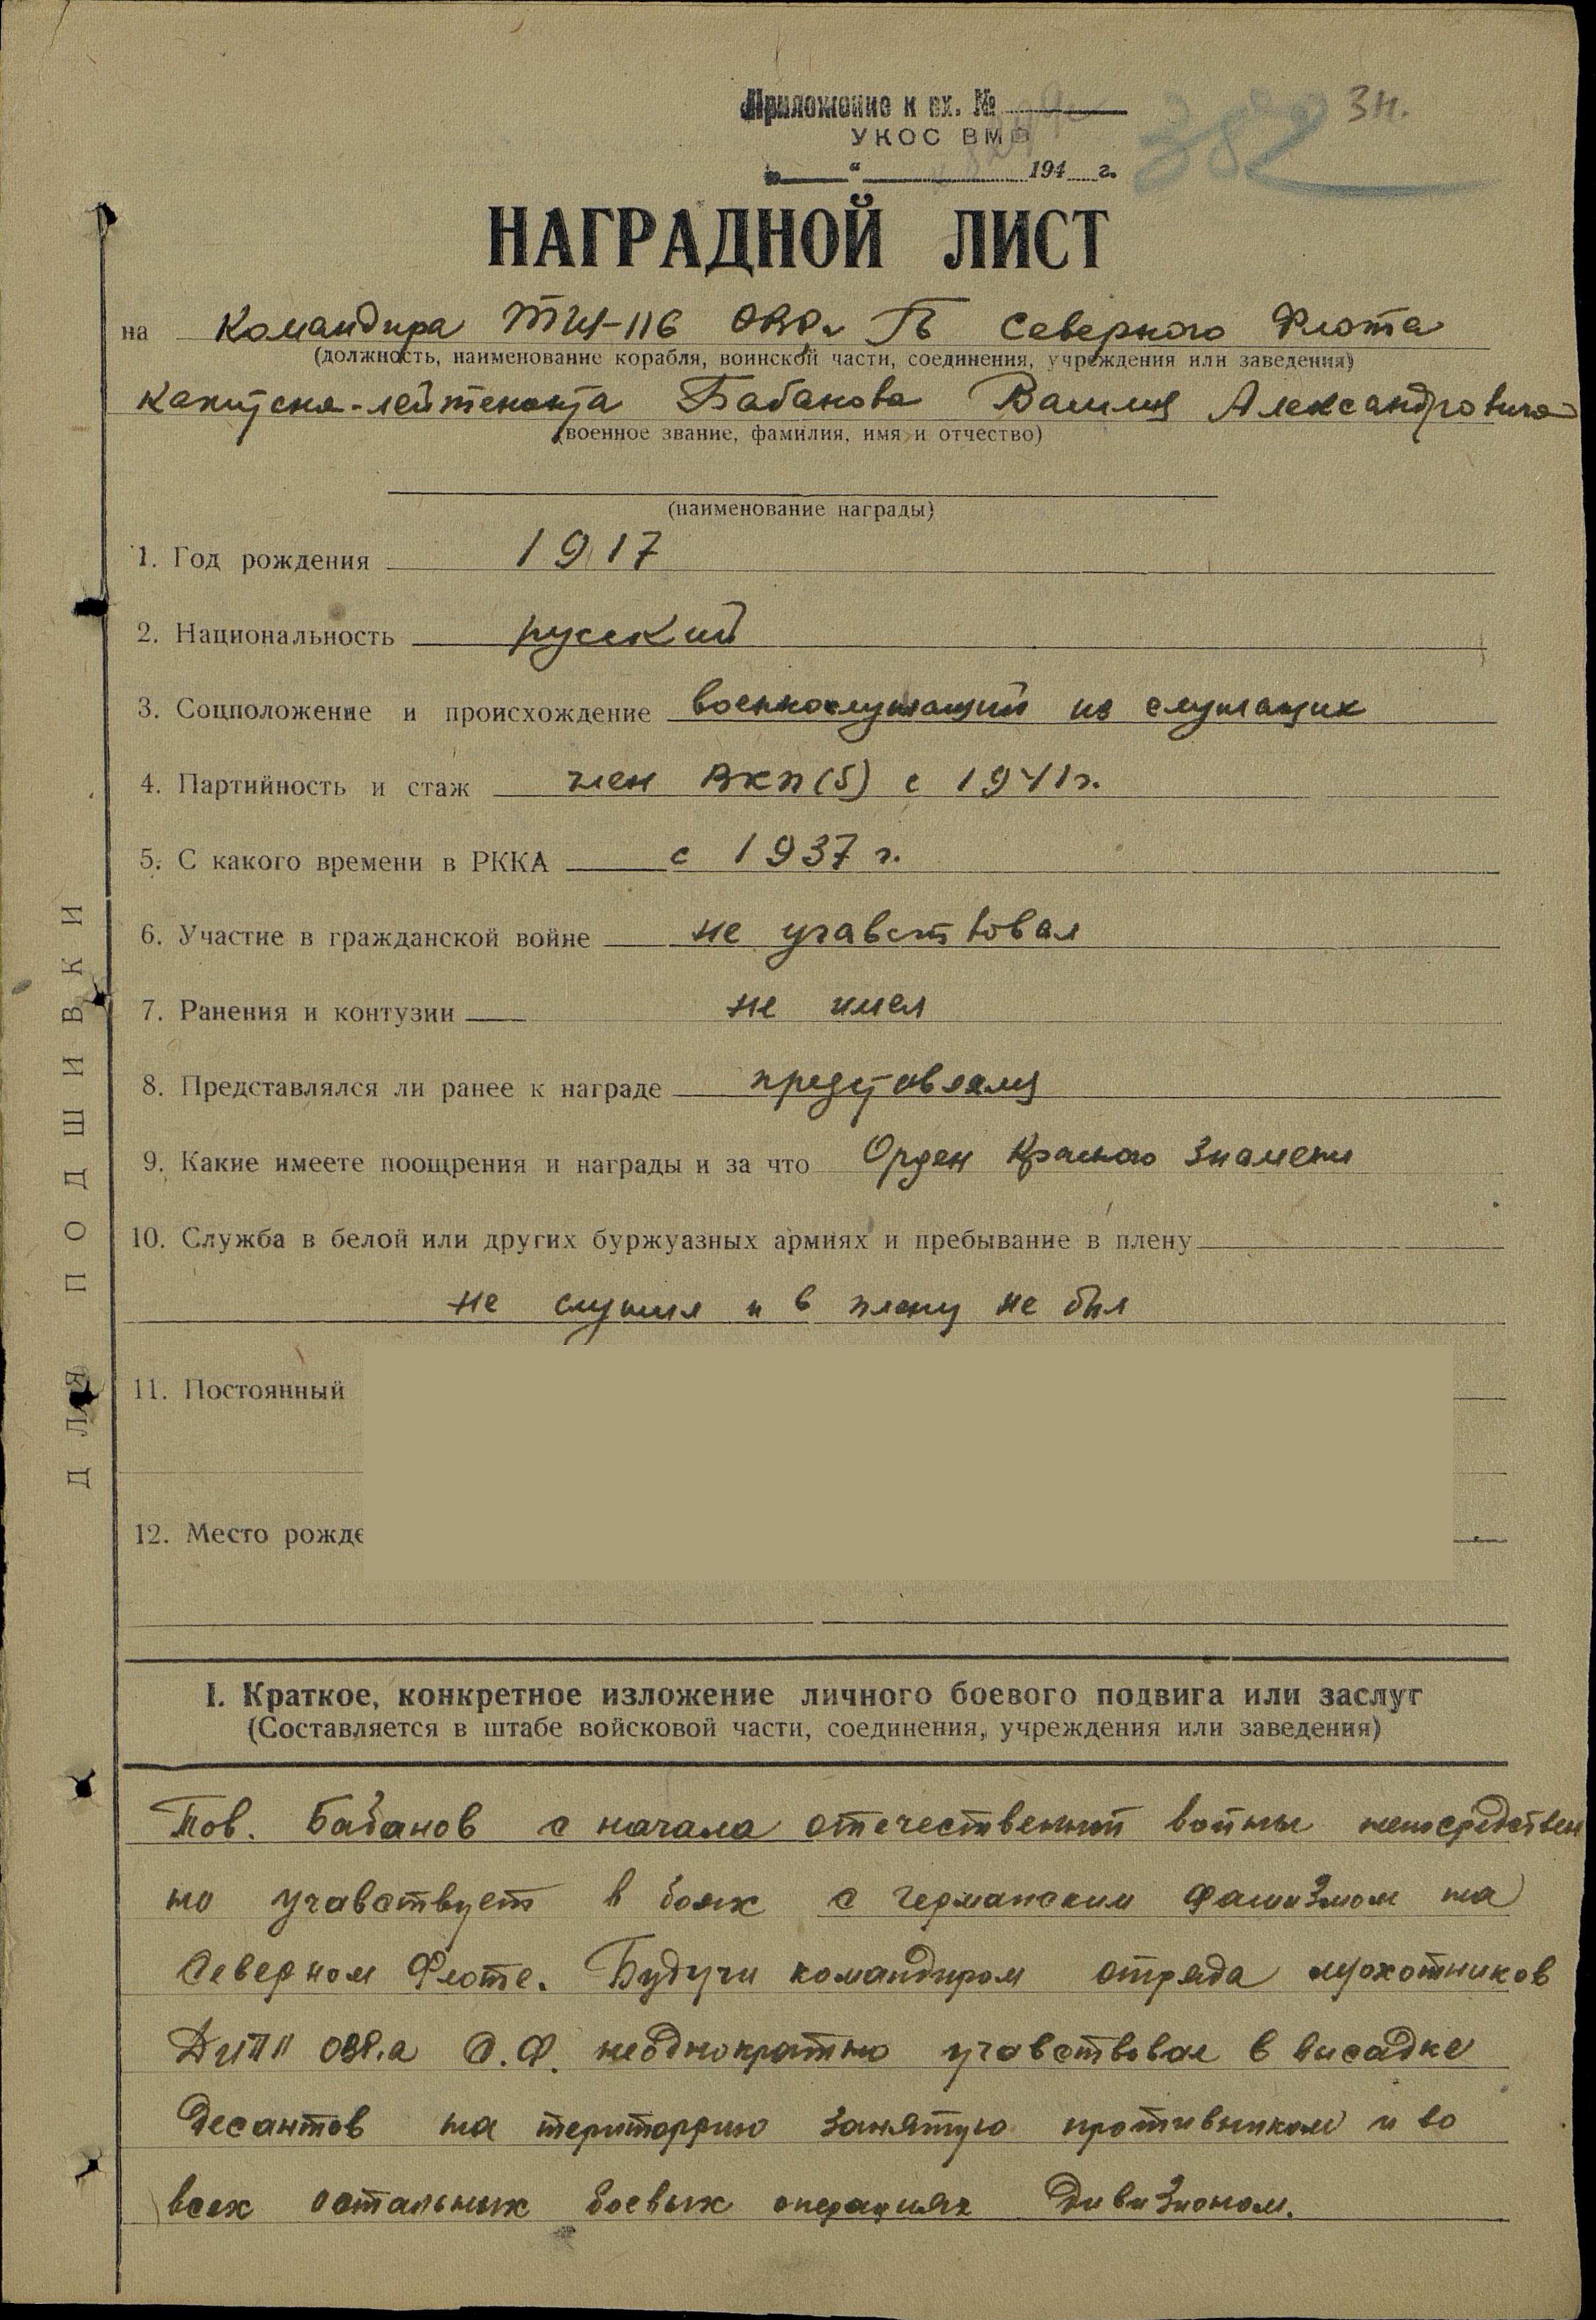 Приложение к вх. №
УКОС ВМФ
382
34.
" " 194 г.
НАГРАДНОЙ ЛИСТ
на Командира ТЩ-116 ОВРа ГБ Северного Флота
(должность, наименование корабля, воинской части, соединения, учреждения или заведения)
капитана-лейтенанта Бабанова Василия Александровича
(военное звание, фамилия, имя и отчество)
(наименование награды)
1. Год рождения 1917
2. Национальность русский
3. Соцположение и происхождение военнослужащий из служащих
4. Партийность и стаж член ВКП(б) с 1941г.
5. С какого времени в РККА с 1937 г.
6. Участие в гражданской войне не учавствовал
7. Ранения и контузии не имел
8. Представлялся ли ранее к награде представлялся
9. Какие имеете поощрения и награды и за что Орден Красного Знамени
10. Служба в белой или других буржуазных армиях и пребывание в плену
не служил и в плену не был
11. Постоянный
12. Место рожде
ДЛЯ ПОДШИВКИ
I. Краткое, конкретное изложение личного боевого подвига или заслуг
(Составляется в штабе войсковой части, соединения, учреждения или заведения)
Тов. Бабанов с начала отечественной войны непосредствен
но учавствует в боях с германским фашизмом на
Северном Флоте. Будучи командиром отряда м/охотников
ОВРа С.Ф. неоднократно учавствовал в высадке
десантов на територию занятую противником и во
всех остальных боевых операциях дивизионом.